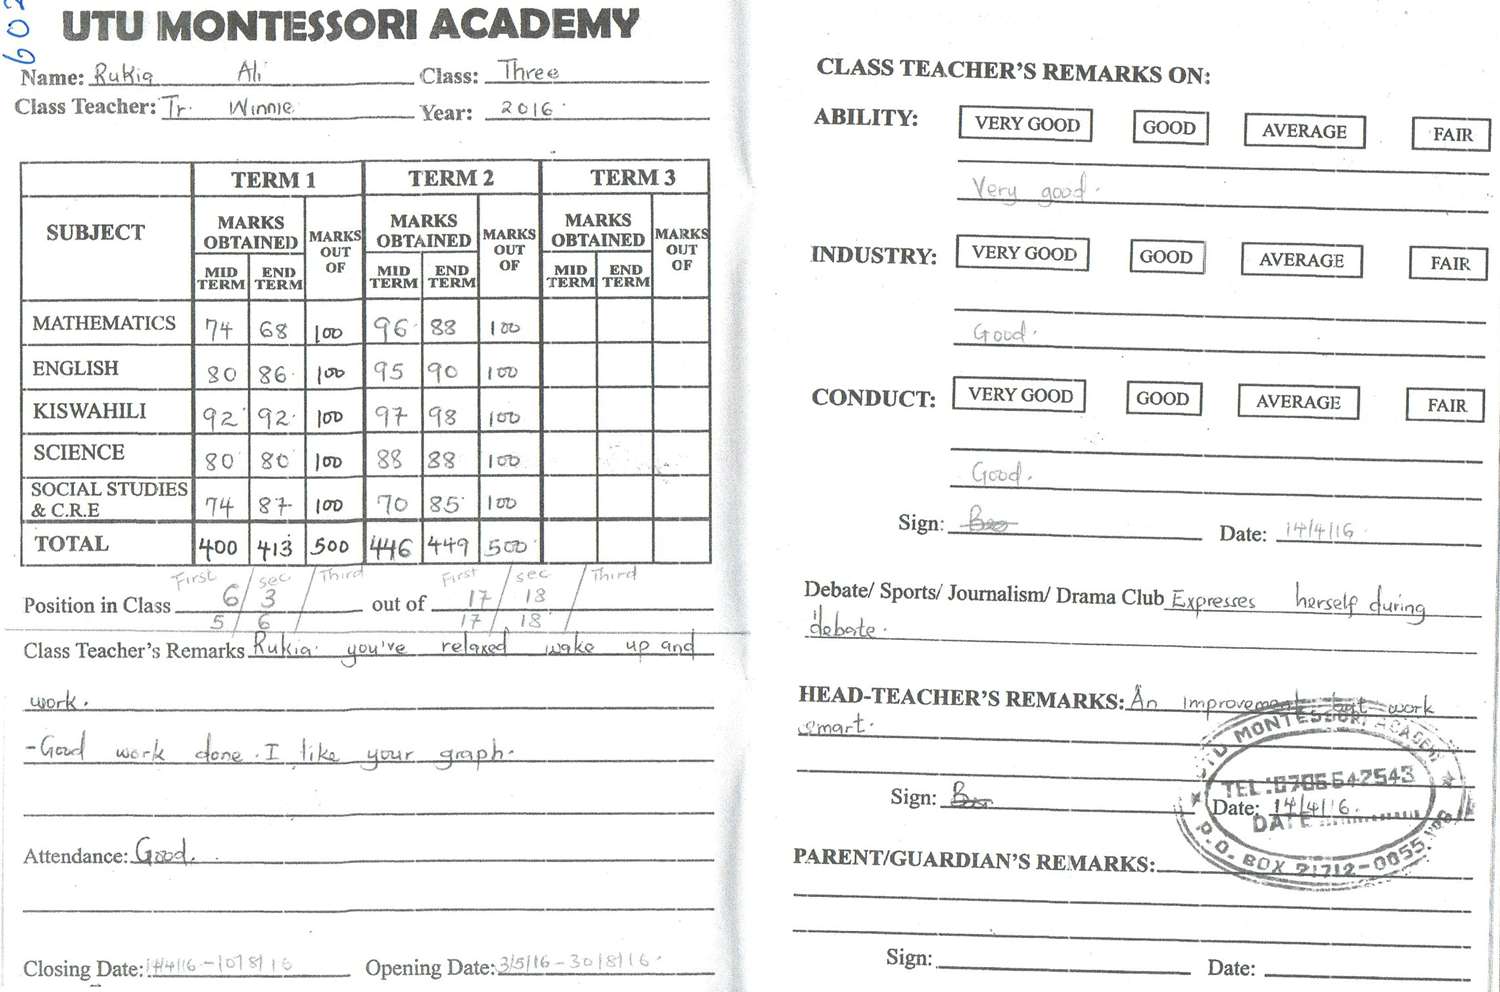 602
UTU MONTESSORI ACADEMY
Name: Rukia Ali Class: Three
Class Teacher: Tr. Winnie Year: 2016.
SUBJECT TERM 1 TERM 2 TERM 3
MARKS OBTAINED MARKS OUT OF MARKS OBTAINED MARKS OUT OF MARKS OBTAINED MARKS OUT OF
MID TERM END TERM MID TERM END TERM MID TERM END TERM
MATHEMATICS 74 68 100 96 88 100
ENGLISH 80 86 100 95 90 100
KISWAHILI 92 92 100 97 98 100
SCIENCE 80 80 100 88 88 100
SOCIAL STUDIES & C.R.E 74 87 100 70 85 100
TOTAL 400 413 500 446 449 500
First / sec / Third First / sec / Third
Position in Class 6 / 3 out of 17 / 18
5 / 6 17 / 18
Class Teacher's Remarks Rukia you've relaxed wake up and
work.
- Good work done. I like your graph.
Attendance: Good.
Closing Date: 14/4/16 - 10/8/16 Opening Date: 3/5/16 - 30/8/16.
CLASS TEACHER'S REMARKS ON:
ABILITY: VERY GOOD GOOD AVERAGE FAIR
Very good.
INDUSTRY: VERY GOOD GOOD AVERAGE FAIR
Good.
CONDUCT: VERY GOOD GOOD AVERAGE FAIR
Good.
Sign: Date: 14/4/16.
Debate/ Sports/ Journalism/ Drama Club Expresses herself during
debate.
HEAD-TEACHER'S REMARKS: An improvement but work
smart.
Sign: Date: 14/4/16.
UTU MONTESSORI ACADEMY
TEL: 0706 647543
DATE
P.O. BOX 21712-00
PARENT/GUARDIAN'S REMARKS:
Sign: Date: